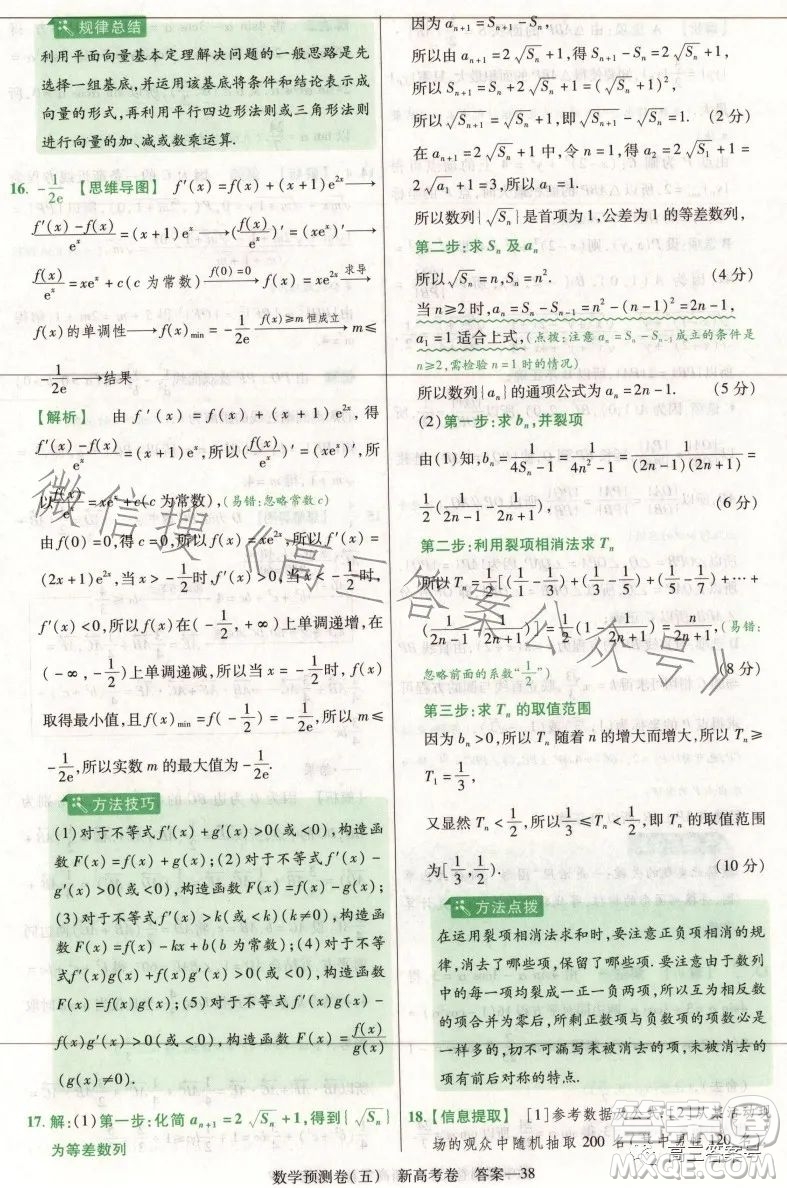 规律总结
利用平面向量基本定理解决问题的一般思路是先
选择一组基底,并运用该基底将条件和结论表示成
向量的形式,再利用平行四边形法则或三角形法则
进行向量的加、减或数乘运算.
16. -1/(2e) 【思维导图】 f'(x)=f(x)+(x+1)e^{2x}→
(f'(x)-f(x))/e^x=(x+1)e^x→(f(x)/e^x)'=(xe^x)'→
f(x)/e^x=xe^x+c(c 为常数) —f(0)=0→ f(x)=xe^{2x} —求导→
f(x)的单调性→f(x)_min=-1/(2e) —f(x)≥m 恒成立→ m≤
-1/(2e)→结果
【解析】 由 f'(x)=f(x)+(x+1)e^{2x},得
(f'(x)-f(x))/e^x=(x+1)e^x,所以(f(x)/e^x)'=(xe^x)',所
以f(x)/e^x=xe^x+c(c 为常数),(易错:忽略常数 c)
由 f(0)=0,得 c=0,所以 f(x)=xe^{2x},所以f'(x)=
(2x+1)e^{2x},当 x>-1/2时,f'(x)>0,当 x<-1/2时,
f'(x)<0,所以f(x)在(-1/2,+∞)上单调递增,在
(-∞,-1/2)上单调递减,所以当 x=-1/2时,f(x)
取得最小值,且 f(x)_min=f(-1/2)=-1/(2e),所以 m≤
-1/(2e),所以实数 m 的最大值为-1/(2e).
方法技巧
(1)对于不等式f'(x)+g'(x)>0(或<0),构造函
数 F(x)=f(x)+g(x);(2)对于不等式 f'(x)-
g'(x)>0(或<0),构造函数F(x)=f(x)-g(x);
(3)对于不等式 f'(x)>k(或<k)(k≠0),构造函
数 F(x)=f(x)-kx+b(b 为常数);(4)对于不等
式f'(x)g(x)+f(x)g'(x)>0(或<0),构造函数
F(x)=f(x)g(x);(5)对于不等式 f'(x)g(x)-
f(x)g'(x)>0(或<0),构造函数 F(x)=f(x)/g(x)
(g(x)≠0).
17. 解:(1)第一步:化简 a_{n+1}=2√S_n+1,得到{√S_n}
为等差数列
因为 a_{n+1}=S_{n+1}-S_n,
所以由 a_{n+1}=2√S_n+1,得 S_{n+1}=(√S_n+1)²,
所以√S_{n+1}=√S_n+1,即√S_{n+1}-√S_n=1. (2 分)
在 a_{n+1}=2√S_n+1 中,令 n=1,得 a_2=2√S_1+1=
2√a_1+1=3,所以 a_1=1.
所以数列{√S_n}是首项为1,公差为1的等差数列,
第二步:求 S_n 及 a_n
所以√S_n=n,S_n=n². (4 分)
当 n≥2 时,a_n=S_n-S_{n-1}=n²-(n-1)²=2n-1,
a_1=1 适合上式,(点拨:注意 a_n=S_n-S_{n-1}成立的条件是
n≥2,需检验 n=1 时的情况)
所以数列{a_n}的通项公式为 a_n=2n-1. (5 分)
(2)第一步:求 b_n,并裂项
由(1)知,b_n=1/(4S_n-1)=1/(4n²-1)=1/((2n-1)(2n+1))=
1/2(1/(2n-1)-1/(2n+1)), (6 分)
第二步:利用裂项相消法求 T_n
所以 T_n=1/2[(1-1/3)+(1/3-1/5)+(1/5-1/7)+⋯+
(1/(2n-1)-1/(2n+1))]=1/2(1-1/(2n+1))=n/(2n+1),(易错:
忽略前面的系数“1/2”) (8 分)
第三步:求 T_n 的取值范围
因为 b_n>0,所以 T_n 随着 n 的增大而增大,所以 T_n≥
T_1=1/3,
又显然 T_n<1/2,所以1/3≤T_n<1/2,即 T_n 的取值范围
为[1/3,1/2). (10 分)
方法点拨
在运用裂项相消法求和时,要注意正负项相消的规
律,消去了哪些项,保留了哪些项.一般地,由于数列
中的每一项均裂成一正一负两项,所以互为相反数
的项合并为零后,所剩正数项与负数项的项数必是
一样多的,切不可漏写未被消去的项,未被消去的项
有前后对称的特点.
18.【信息提取】 [1]参考数据及公式;[2]从某活动现
场的观众中随机抽取 200 名(其中男性 120 名
数学预测卷(五) 新高考卷 答案—38
微信搜《高三答案公众号》
高三答案号